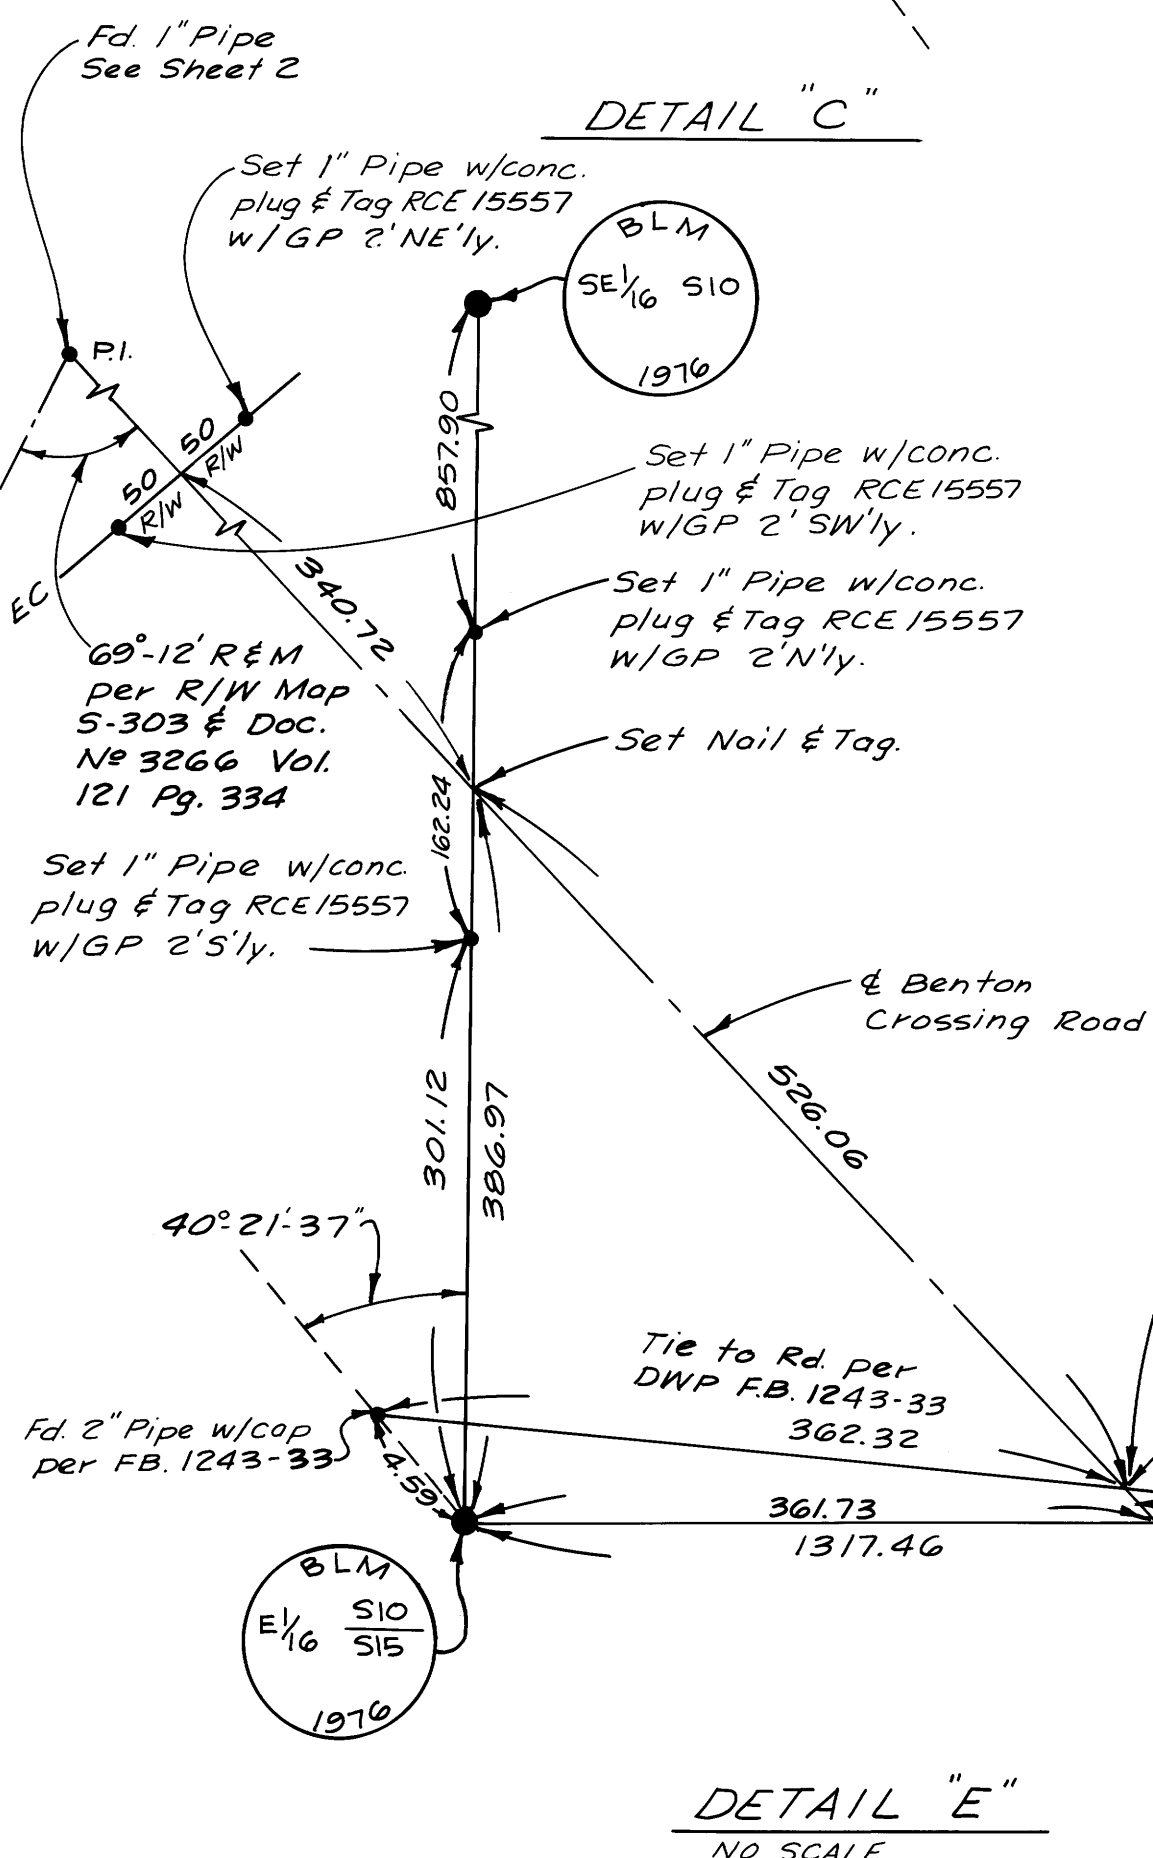 Fd. 1" Pipe
See Sheet 2
DETAIL "C"
Set 1" Pipe w/conc.
plug & Tag RCE 15557
w/GP 2' NE'ly.
BLM
SE 1/16 S10
1976
P.I.
50
R/W
50
R/W
EC
857.90
Set 1" Pipe w/conc.
plug & Tag RCE 15557
w/GP 2' SW'ly.
340.72
Set 1" Pipe w/conc.
plug & Tag RCE 15557
w/GP 2'N'ly.
69°-12' R & M
per R/W Map
S-303 & Doc.
Nº 3266 Vol.
121 Pg. 334
Set Nail & Tag.
162.24
Set 1" Pipe w/conc.
plug & Tag RCE 15557
w/GP 2'S'ly.
℄ Benton
Crossing Road
526.06
301.12
386.97
40°-21'-37"
Tie to Rd. per
DWP F.B. 1243-33
362.32
Fd. 2" Pipe w/cap
per FB. 1243-33
4.59
361.73
1317.46
BLM
E 1/16 S10
S15
1976
DETAIL "E"
NO SCALE